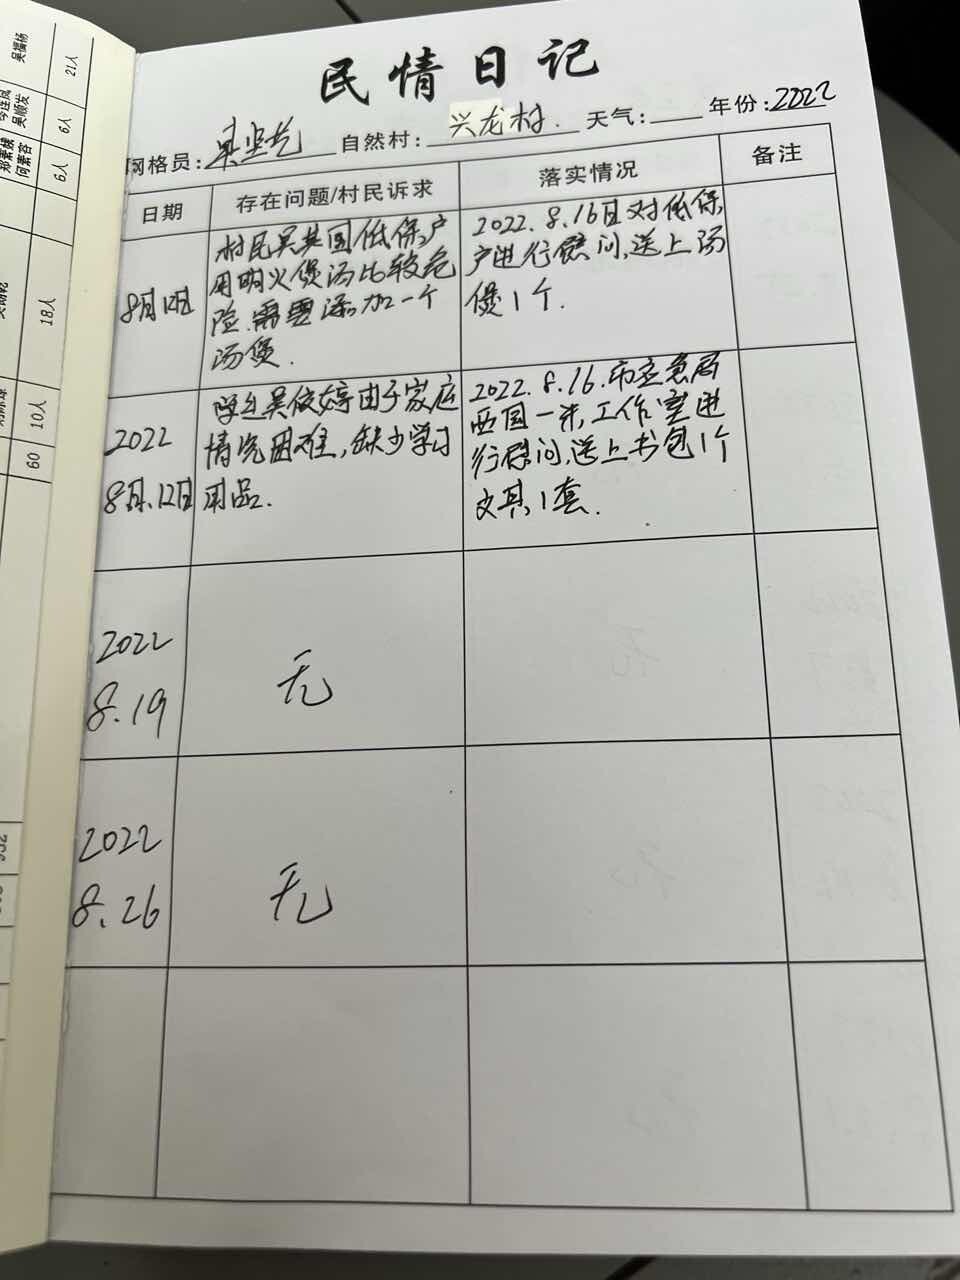 民情日记
网格员: 吴坚艺 自然村: 兴龙村. 天气: 年份: 2022
日期 存在问题/村民诉求 落实情况 备注
8月12日
村民吴其国低保户
用明火煲汤比较危
险.需要添加一个
汤煲.
2022.8.16日对低保
户进行慰问,送上汤
煲1个.
2022
8月.12日
学生吴俊婷由于家庭
情况困难,缺少学习
用品.
2022.8.16.市应急局
西国一来,工作室进
行慰问,送上书包1个
文具,1套.
2022
8.19
无
2022
8.26
无
吴福杨
21人
吴顺发
6人
郑素梭
何素容
6人
18人
10人
60
932